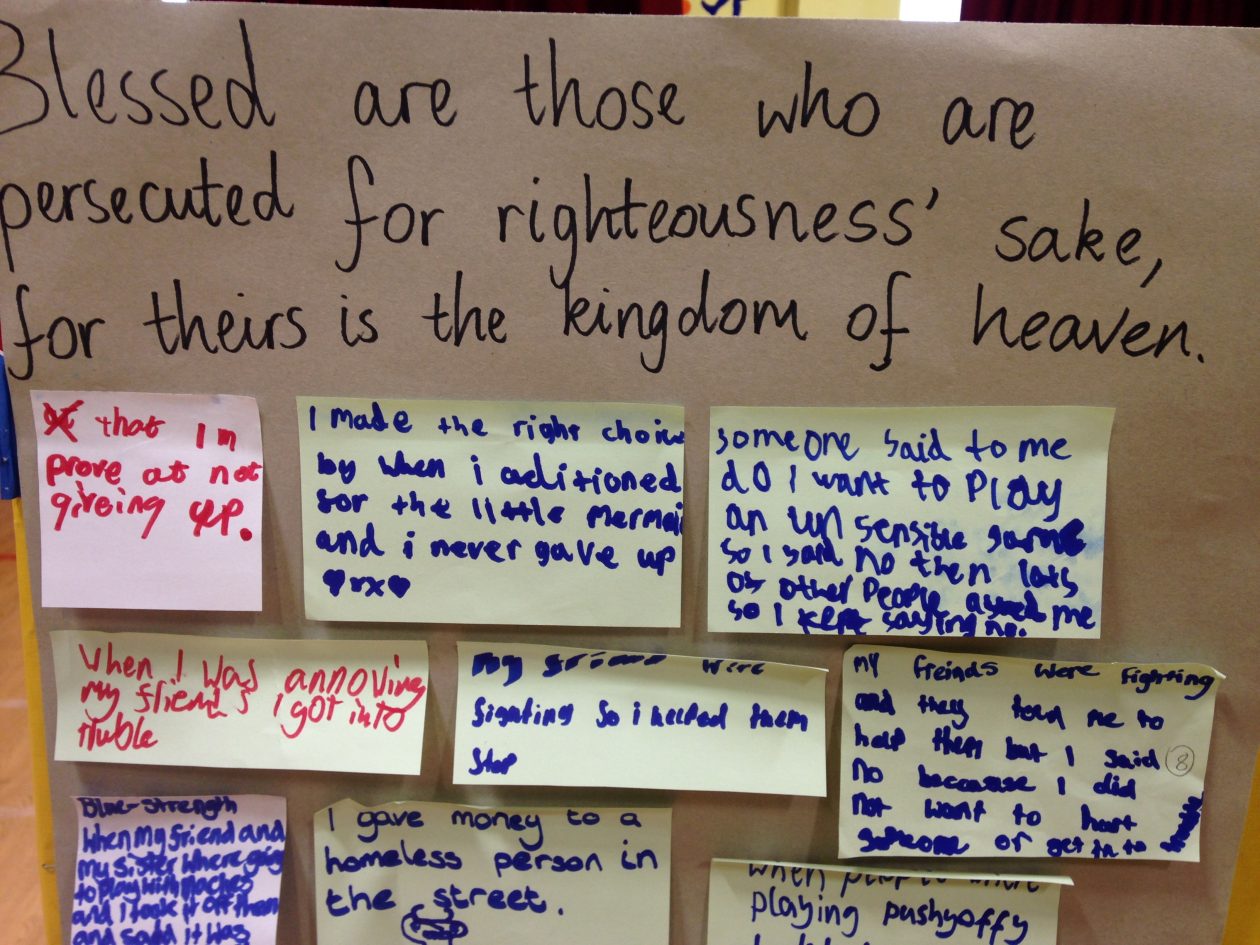 Blessed are those who are
persecuted for righteousness' sake,
for theirs is the kingdom of heaven.
that Im
prove at not
giveing up.
I made the right choice
by when i aditioned
for the little mermai
and i never gave up
xx
someone said to me
do I want to play
an unsensible game
so I said no then lots
of other people asked me
so I kept saying no.
When I was annoying
my friend's I got into
truble
my friend were
fighting so i helped them
stop
my freinds were fighting
and they told me to
help them but I said
8
no beccause I did
not want to hurt
someone or get in to
Blue-Strength
When my friend and
my sister where going
to play with maches
and I took it off them
and said it was
I gave money to a
homeless person in
the street.
when people were
playing pushyoffy